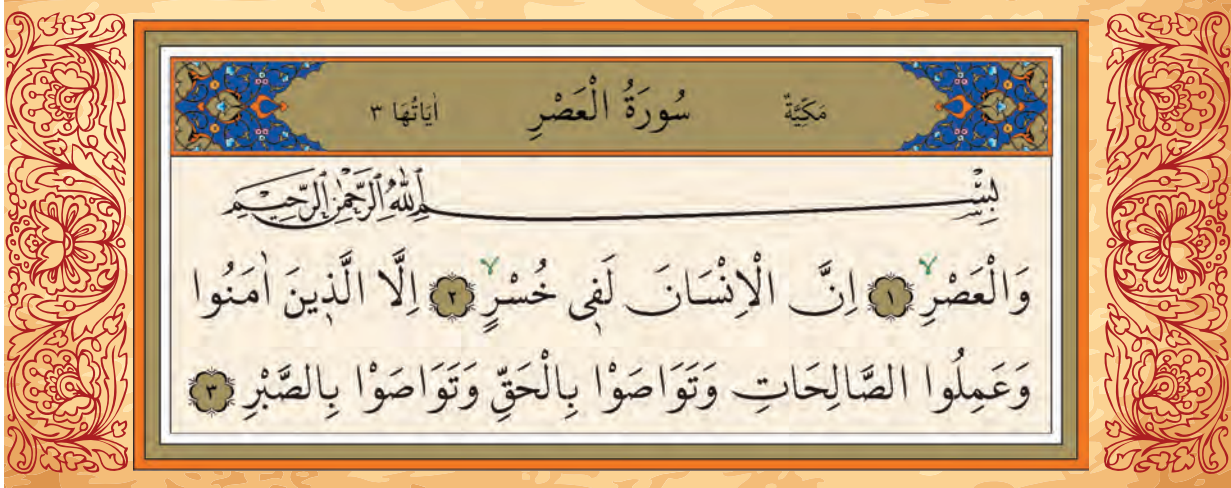 مَكِّيَّةٌ سُورَةُ الْعَصْرِ اٰيَاتُهَا ٣
بِسْمِ اللّٰهِ الرَّحْمٰنِ الرَّحِيمِ
وَالْعَصْرِۙ ﴿١﴾ اِنَّ الْاِنْسَانَ لَفٖى خُسْرٍۙ ﴿٢﴾ اِلَّا الَّذٖينَ اٰمَنُوا
وَعَمِلُوا الصَّالِحَاتِ وَتَوَاصَوْا بِالْحَقِّ وَتَوَاصَوْا بِالصَّبْرِ ﴿٣﴾